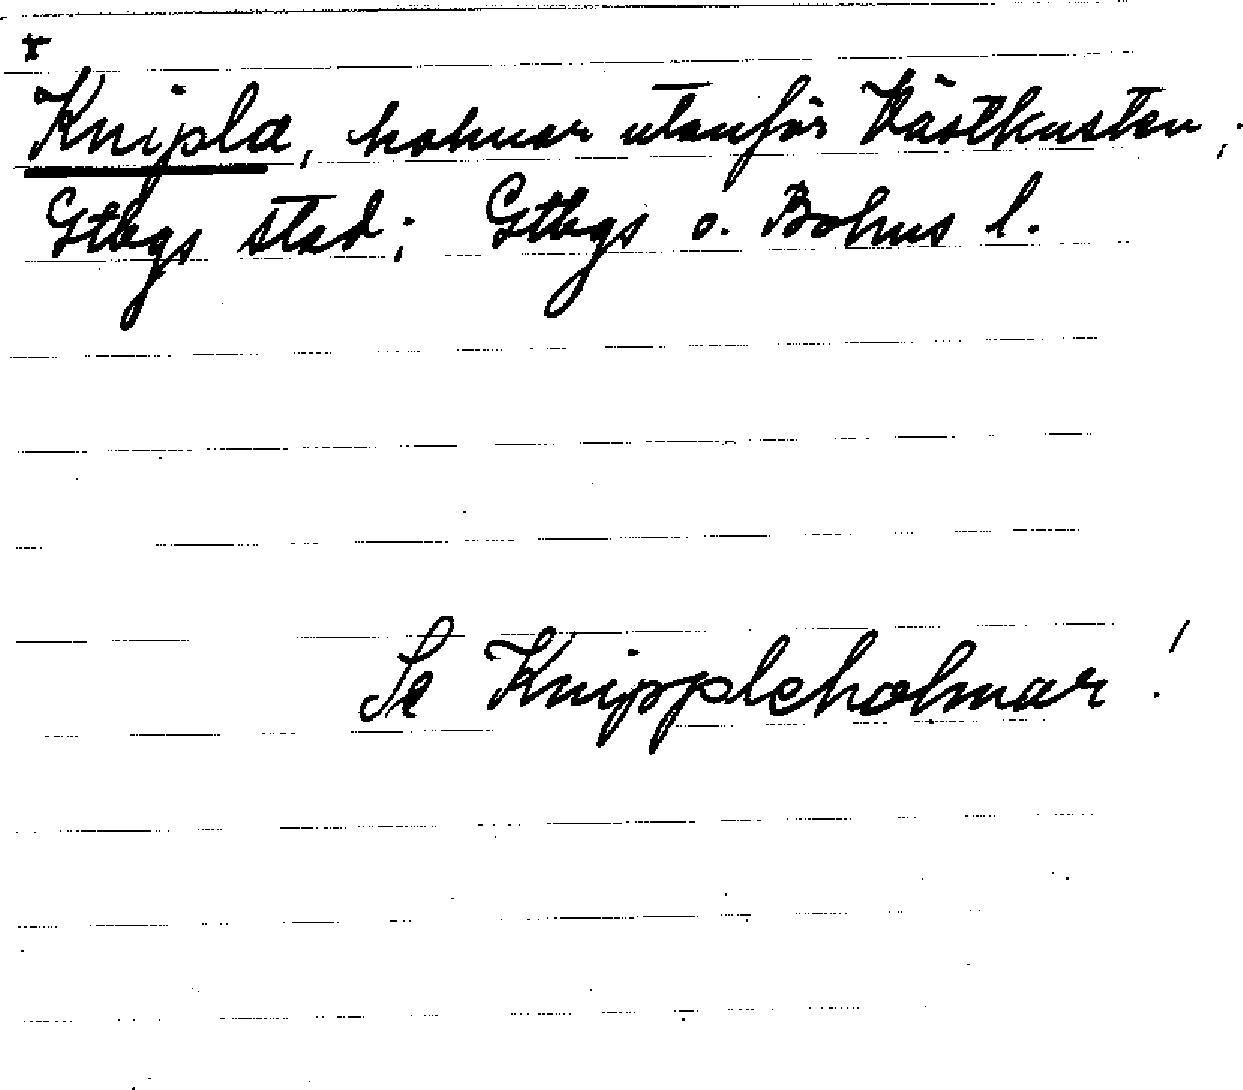 x
Knipla, holmar utanför Västkusten;
Gtbgs stad; Gtbgs o. Bohus l.
Se Knippleholmar!